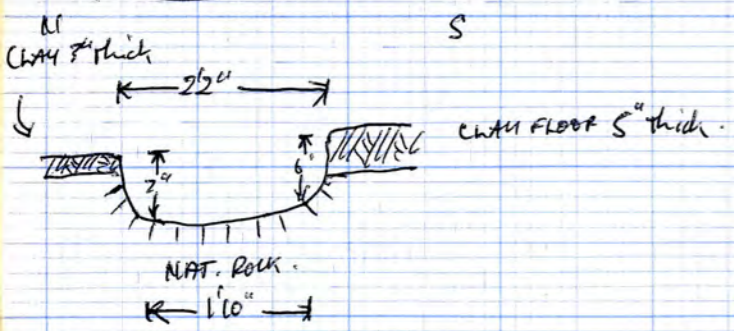 N
S
CLAY 3" thick
2'2"
CLAY FLOOR 5" thick.
6"
NAT. ROCK.
1'10"